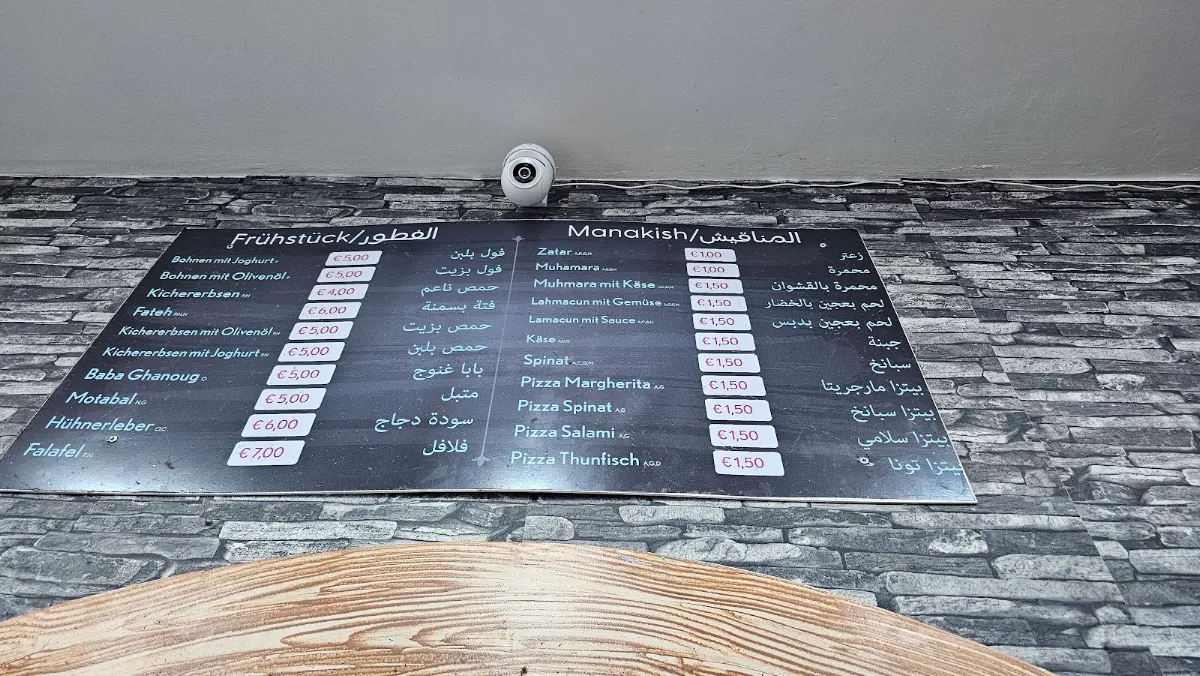 Frühstück/الفطور
Bohnen mit Joghurt € 5,00 فول بلبن
Bohnen mit Olivenöl € 5,00 فول بزيت
Kichererbsen € 4,00 حمص ناعم
Fateh € 6,00 فتة بسمنة
Kichererbsen mit Olivenöl € 5,00 حمص بزيت
Kichererbsen mit Joghurt € 5,00 حمص بلبن
Baba Ghanoug € 5,00 بابا غنوج
Motabal A,G € 5,00 متبل
Hühnerleber € 6,00 سودة دجاج
Falafel € 7,00 فلافل
Manakish/المناقيش
Zatar € 1,00 زعتر
Muhamara € 1,00 محمرة
Muhmara mit Käse € 1,50 محمرة بالقشوان
Lahmacun mit Gemüse € 1,50 لحم بعجين بالخضار
Lamacun mit Sauce € 1,50 لحم بعجين بدبس
Käse € 1,50 جبنة
Spinat € 1,50 سبانخ
Pizza Margherita A,G € 1,50 بيتزا مارجريتا
Pizza Spinat A,G € 1,50 بيتزا سبانخ
Pizza Salami A,G € 1,50 بيتزا سلامي
Pizza Thunfisch A,G,D € 1,50 بيتزا تونا